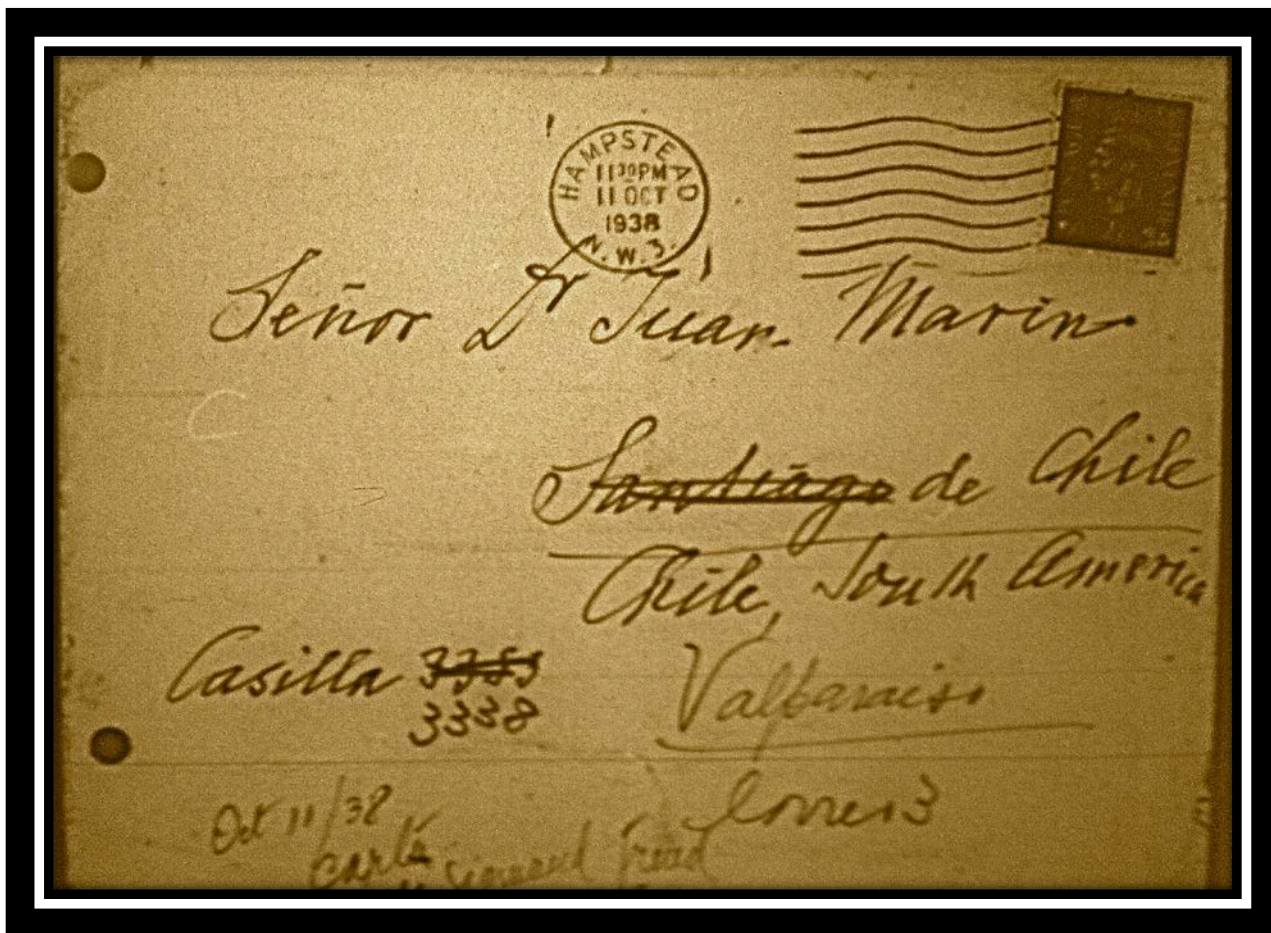 HAMPSTEAD
11 30 PM
11 OCT
1938
N.W.3.
Señor Dr Juan Marin
Santiago de Chile
Chile, South America
Casilla 3383
3338
Valparaiso
Correo 3
Oct 11/38
Carta
Sigmund Freud